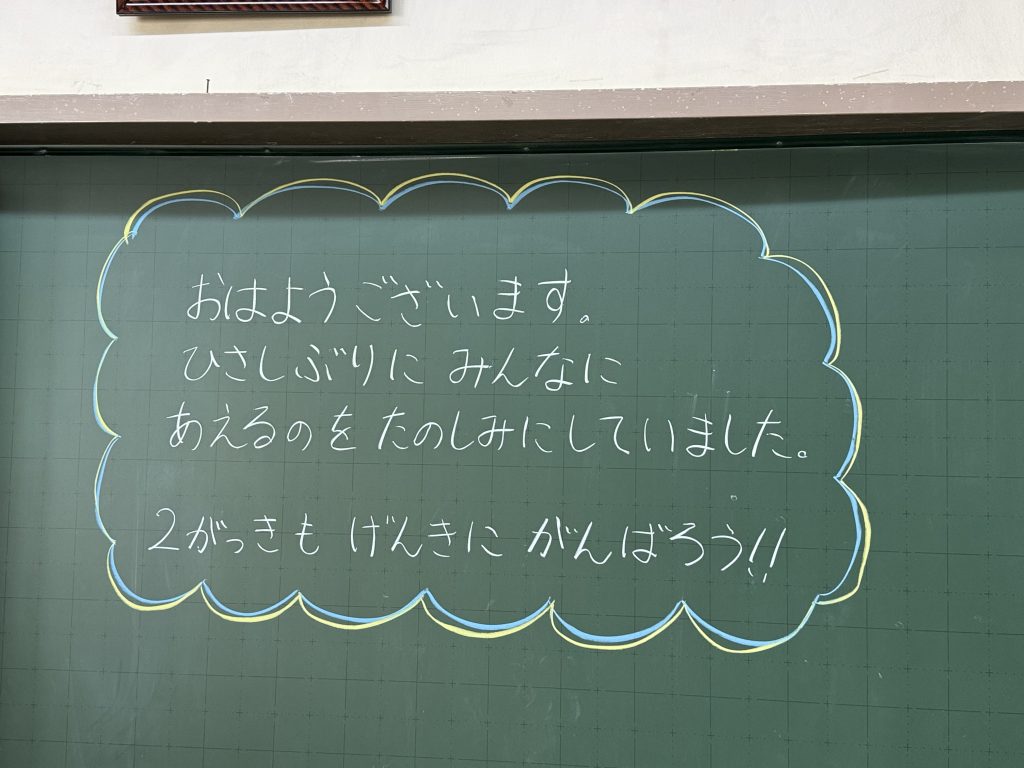 おはようございます。
ひさしぶりに みんなに
あえるのを たのしみにしていました。
2がっきも げんきに がんばろう!!